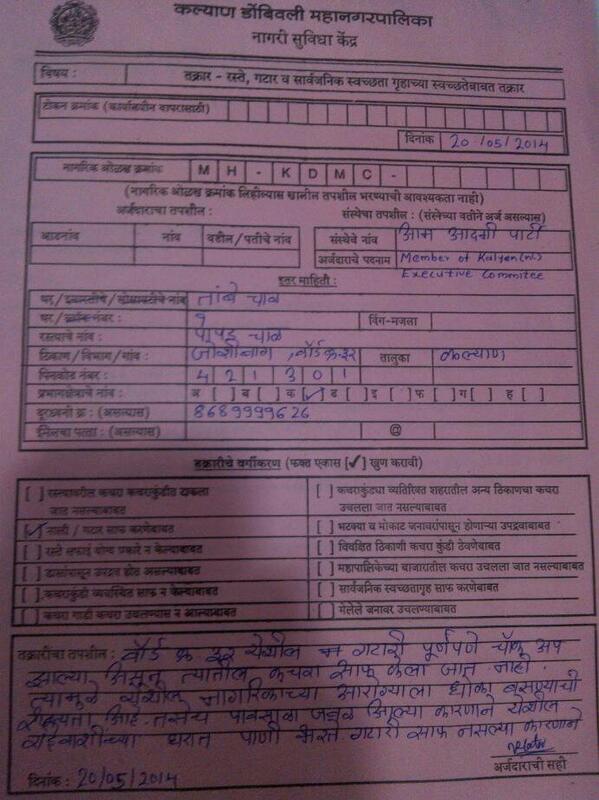 कल्याण डोंबिवली महानगरपालिका
नागरी सुविधा केंद्र
विषय : तक्रार - रस्ते, गटार व सार्वजनिक स्वच्छता गृहाच्या स्वच्छतेबाबत तक्रार
टोकन क्रमांक (कार्यालयीन वापरासाठी)
दिनांक 20/05/2014
नागरिक ओळख क्रमांक M H - K D M C -
(नागरिक ओळख क्रमांक लिहील्यास खालील तपशील भरण्याची आवश्यकता नाही)
अर्जदाराचा तपशील : संस्थेचा तपशील : (संस्थेच्या वतीने अर्ज असल्यास)
आडनांव नांव वडील/पतीचे नांव संस्थेचे नांव आम आदमी पार्टी
अर्जदाराचे पदनाम Member of Kalyan(w).
Executive Committee
इतर माहिती :
घर/इमारतीचे/सोसायटीचे नांव तांबे चाळ
घर/ब्लॉक नंबर : 9 विंग-मजला
रस्त्याचे नांव : पापड चाळ
ठिकाण/विभाग/गांव : जोशीबाग, वॉर्ड क्र तालुका कल्याण
पिनकोड नंबर : 4 2 1 3 0 1
प्रभागक्षेत्राचे नांव : अ [ ] ब [ ] क [✓] ड [ ] इ [ ] फ [ ] ग [ ] ह [ ]
दूरध्वनी क्र : (असल्यास) 8689999626
ईमेलचा पत्ता : (असल्यास) @
तक्रारीचे वर्गीकरण (फक्त एकास [✓] खुण करावी)
[ ] रस्त्यावरील कचरा कचराकुंडीत टाकला जात नसल्याबाबत
[ ] कचराकुंड्या व्यतिरिक्त शहरातील अन्य ठिकाणचा कचरा उचलला जात नसल्याबाबत
[✓] नाली / गटार साफ करणेबाबत
[ ] भटक्या व मोकाट जनावरांपासून होणाऱ्या उपद्रवाबाबत
[ ] रस्ते सफाई योग्य प्रकारे न केल्याबाबत
[ ] विवक्षित ठिकाणी कचरा कुंडी ठेवणेबाबत
[ ] डासांपासून उपद्रव होत असल्याबाबत
[ ] महापालिकेच्या बाजारातील कचरा उचलला जात नसल्याबाबत
[ ] कचराकुंडी व्यवस्थित साफ न केल्याबाबत
[ ] सार्वजनिक स्वच्छतागृह साफ करणेबाबत
[ ] कचरा गाडी कचरा उचलण्यास न आल्याबाबत
[ ] मेलेले जनावर उचलण्याबाबत
तक्रारीचा तपशील : वॉर्ड क्र येथील गटारी पूर्णपणे चॉक अप
झाल्या असून त्यातील कचरा साफ केला जात नाही.
त्यामुळे येथील नागरिकाच्या आरोग्याला धोका बसण्याची
शक्यता आहे. तसेच पावसाळा जवळ आल्या कारणाने येथील
रहिवाशींच्या घरात पाणी भरते गटारी साफ नसल्या कारणाने
अर्जदाराची सही
दिनांक : 20/05/2014